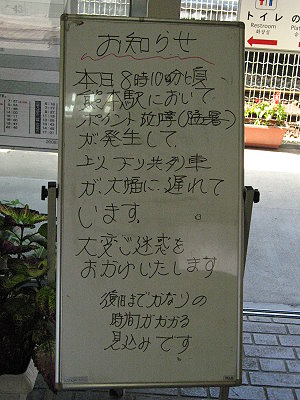 お知らせ
本日8時10分頃
熊本駅において
ポイント故障(踏ー)
が発生して
上り下り共列車
が大幅に遅れて
います。
大変ご迷惑を
おかけいたします
復旧までかなりの
時間がかかる
見込みです
トイレの
Restroom
화장실